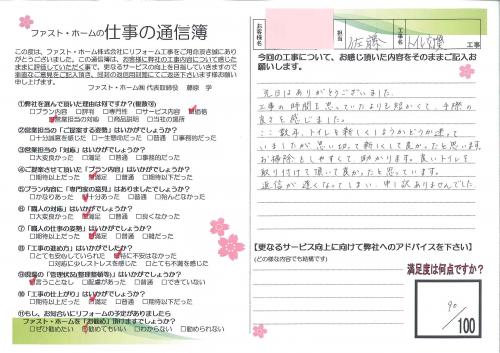 ファスト・ホームの仕事の通信簿
この度は、ファスト・ホーム株式会社にリフォーム工事をご用命頂き誠にあり
がとうございました。この通信簿は、お客様に弊社工事内容について感じた
ままに評価していただく事で、更なるサービスの向上を目指していきますので
忌直なご意見をご記入頂き、同封の返信用封筒にてご返送下さいます様お願い
申し上げます。
ファスト・ホーム㈱ 代表取締役 藤原 学
①弊社を選んで頂いた理由は何ですか?(複数可)
□プラン内容 □評判 □専門性 □サービス内容 □価格
□営業担当の対応 □商品説明 □当社の提案
②営業担当の「ご提案する姿勢」はいかがでしょうか?
□十分誠意を感じた □一生懸命だった □普通 □事務的だった
③営業担当の「対応」はいかがでしょうか?
□大変良かった □満足 □普通 □事務的だった
④ご提案させて頂いた「プラン内容」はいかがでしょうか?
□期待以上だった □満足 □普通 □期待外れだった
⑤プラン内容に「専門家の意見」はありましたでしょうか?
□かなりあった □十分あった □普通 □殆どなかった
⑥「職人の対応」はいかがでしょうか?
□大変良かった □満足 □普通 □良くなかった
⑦「職人の仕事の姿勢」はいかがでしょうか?
□期待以上だった □満足 □普通 □雑だった
⑧「工事の進め方」はいかがでしたか?
□とても安心していられた □特に不安はなかった
□対応に少しストレスを感じた □とても不満を感じた
⑨現場の「管理状況(整理整頓等)」はいかがでしょうか?
□言うことなし □配慮があった □普通 □できていない
⑩「工事の仕上がり」はいかがでしょうか?
□期待以上だった □満足 □普通 □期待外れだった
⑪もし、お知合いにリフォームの予定がありましたら
ファスト・ホームを「お勧め」頂けますでしょうか?
□ぜひ勧めたい □勧めてもいい □わからない □勧められない
お客様名
担当
佐藤
工事名
トイレ交換
工事
今回の工事について、お感じ頂いた内容をそのままご記入お
願いします。
先日はありがとうございました。
工事の時間も思っていたよりも短かくて、手際の
良さも感じました。
ここ数年、トイレも新しくしようかどうか迷って
いましたが思い切って新しくして良かったと思います。
お掃除もしやすくて助かります。良いトイレを
取り付けて頂いて良かったと思っています。
返信が遅くなってしまい、申し訳ありませんでした。
【更なるサービス向上に向けて弊社へのアドバイスを下さい】
(どの様な内容でも結構です)
満足度は何点ですか?
90
/100